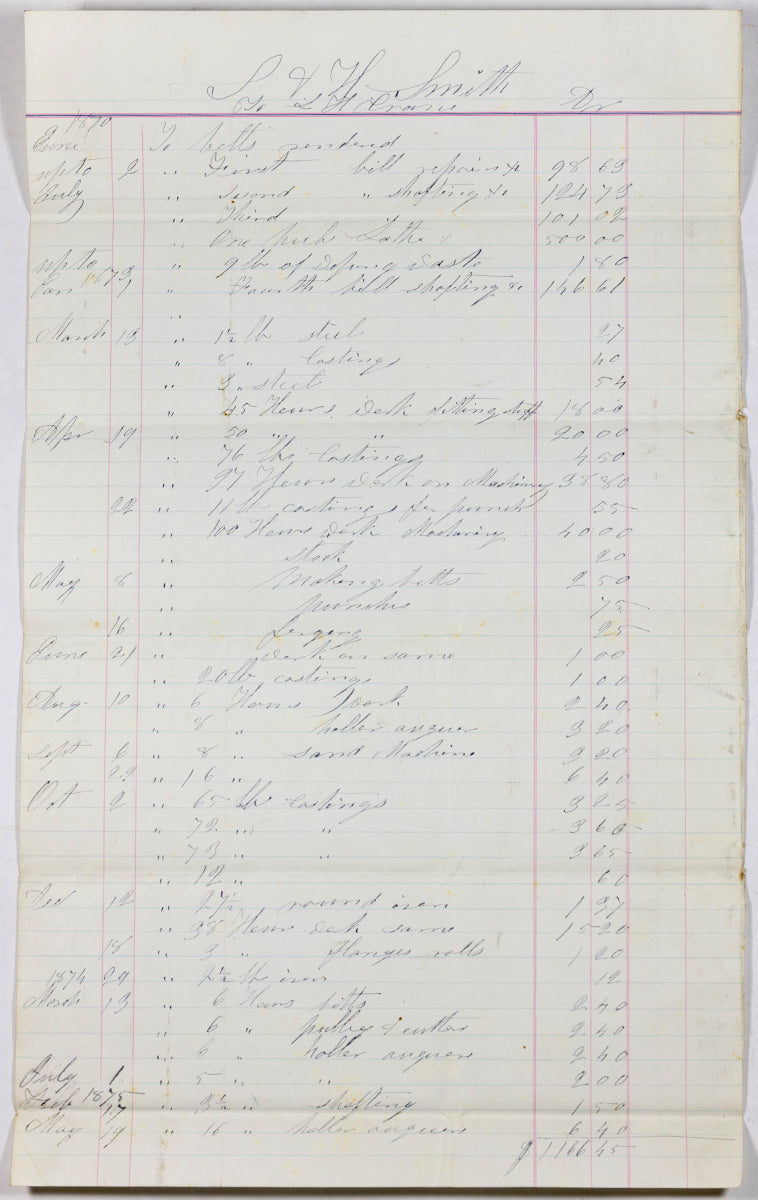 S & H Smith
To L H Crane Dr
1870
June To bills rendered
up to 2 " First bill repairs & 98 63
July " second " shafting &c 124 73
" Third " 101 02
" One Lathe & 500 00
up to " 9 lb of waste 1 80
Jan 1873 1 " Fourth bill shafting &c 146 61
"
March 13 " 1 1/2 lb steel 27
" 8 " Castings 40
" 3 " steel 54
" 45 Hours Work fitting stuff 18 00
Apr 19 " 50 " " 20 00
" 76 lbs Castings 4 50
" 97 Hours Work on Machinery 38 80
22 " 11 lb castings for punch 55
" 100 Hours Work Machinery 40 00
" stock 20
May 8 " Making bitts 2 50
" punches 75
16 " forging 25
June 21 " Work on same 1 00
" 20 lb castings 1 00
Aug 10 " 6 Hours Work 2 40
" 8 " holler auguer 3 20
Sept 6 " 8 " sand Machine 3 20
22 " 16 " 6 40
Oct 2 " 65 lb Castings 3 25
" 72 " " 3 60
" 73 " " 3 65
" 12 " 60
Dec 12 " 27 1/2 round iron 1 37
" 38 Hours Work same 15 20
18 " 3 " flanges rolls 1 20
1874 29 " 2 1/2 lb iron 12
March 13 " 6 Hours bitts 2 40
" 6 " pulley & cutter 2 40
" 6 " holler auguers 2 40
July 1 " 5 " " 2 00
Feb 1875 17 " 3 1/2 " shafting 1 50
May 19 " 16 " holler auguers 6 40
$ 1166 45